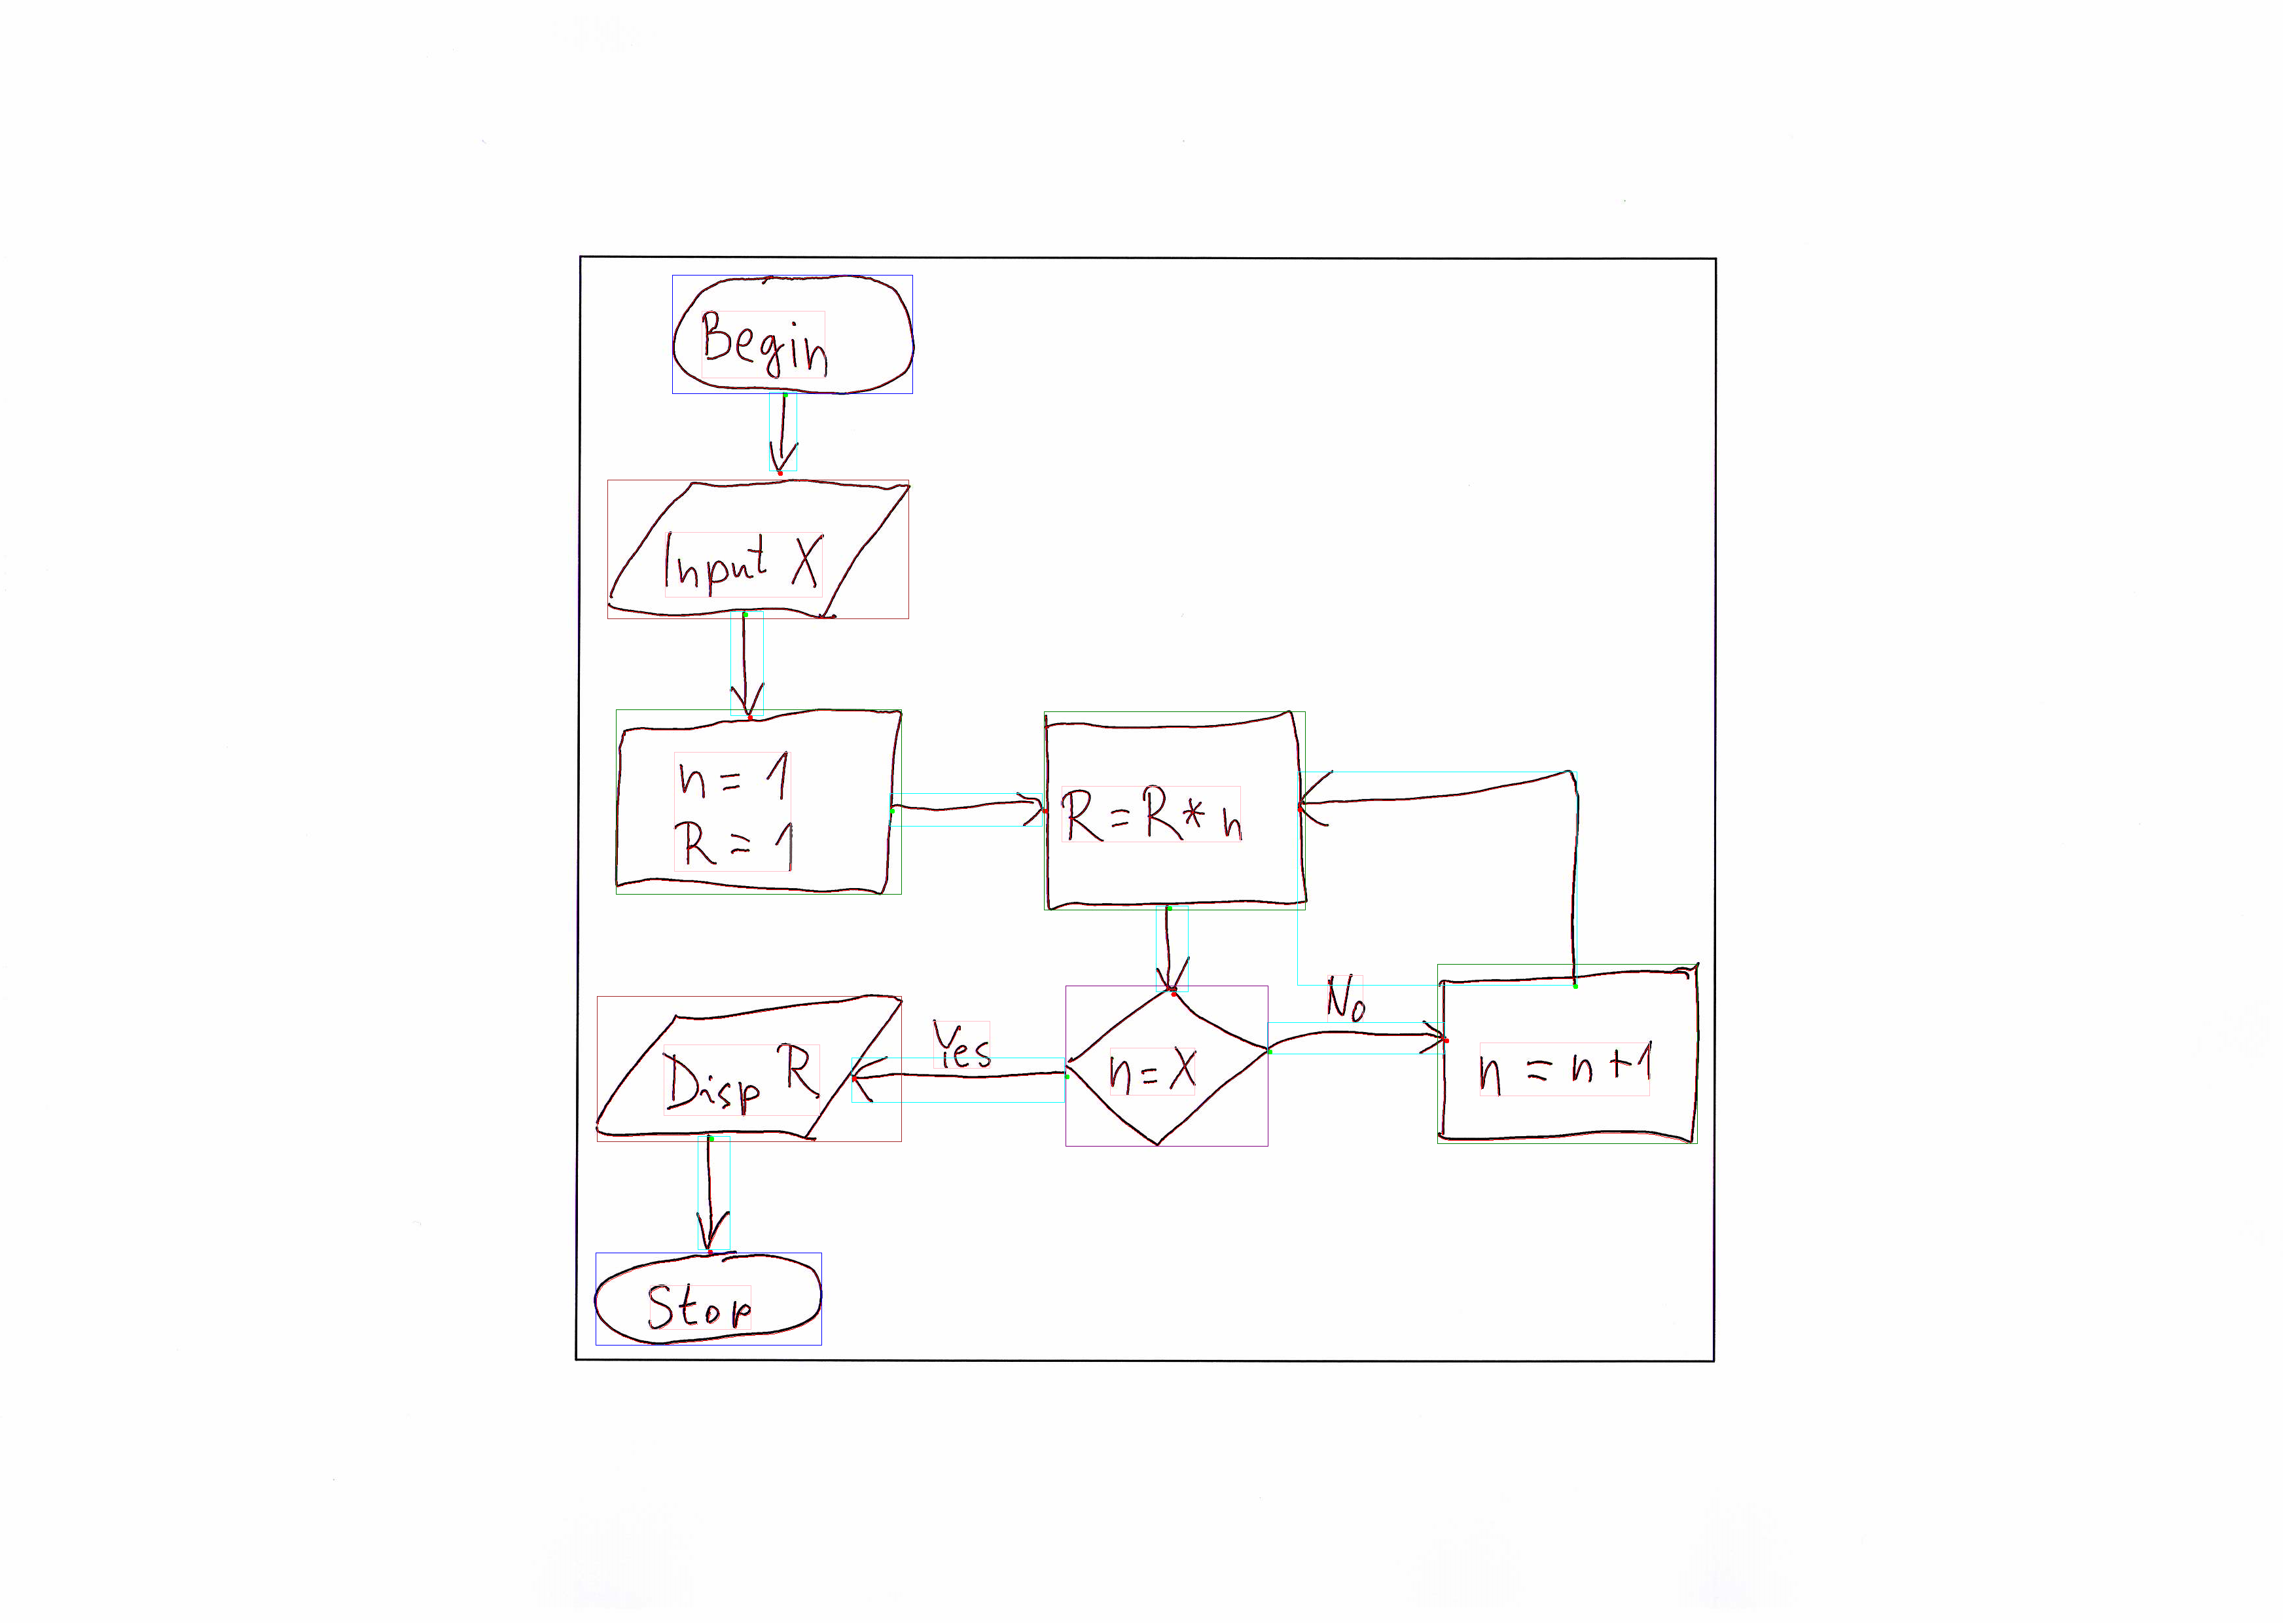 Begin
Input X
n = 1
R = 1
R = R * n
n = X
Yes
No
Disp R
n = n + 1
Stop